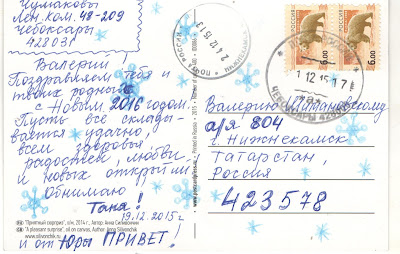 Чумаковы
Лен.ком. 48-209
Чебоксары
428031
Валерий!
Поздравляем тебя и
твоих родных
с Новым 2016 годом.
Пусть всё склады-
вается удачно,
всем здоровья
радостей, любви
и новых открытий
Обнимаю
Таня!
19.12.2015г
и от Юры ПРИВЕТ!
"Приятный сюрприз", х/м, 2014 г., Автор: Анна Силивончик
"A pleasant surprise", oil on canvas, Author: Anna Silivonchik
www.silivonchik.ru
РОССИЯ
РОССИЯ
6.00
6.00
ПОЧТА РОССИИ
НИЖНЕКАМСК
24.12.15
ЧЕБОКСАРЫ
Валерию
а/я 804
г. Нижнекамск
Татарстан,
Россия
423578